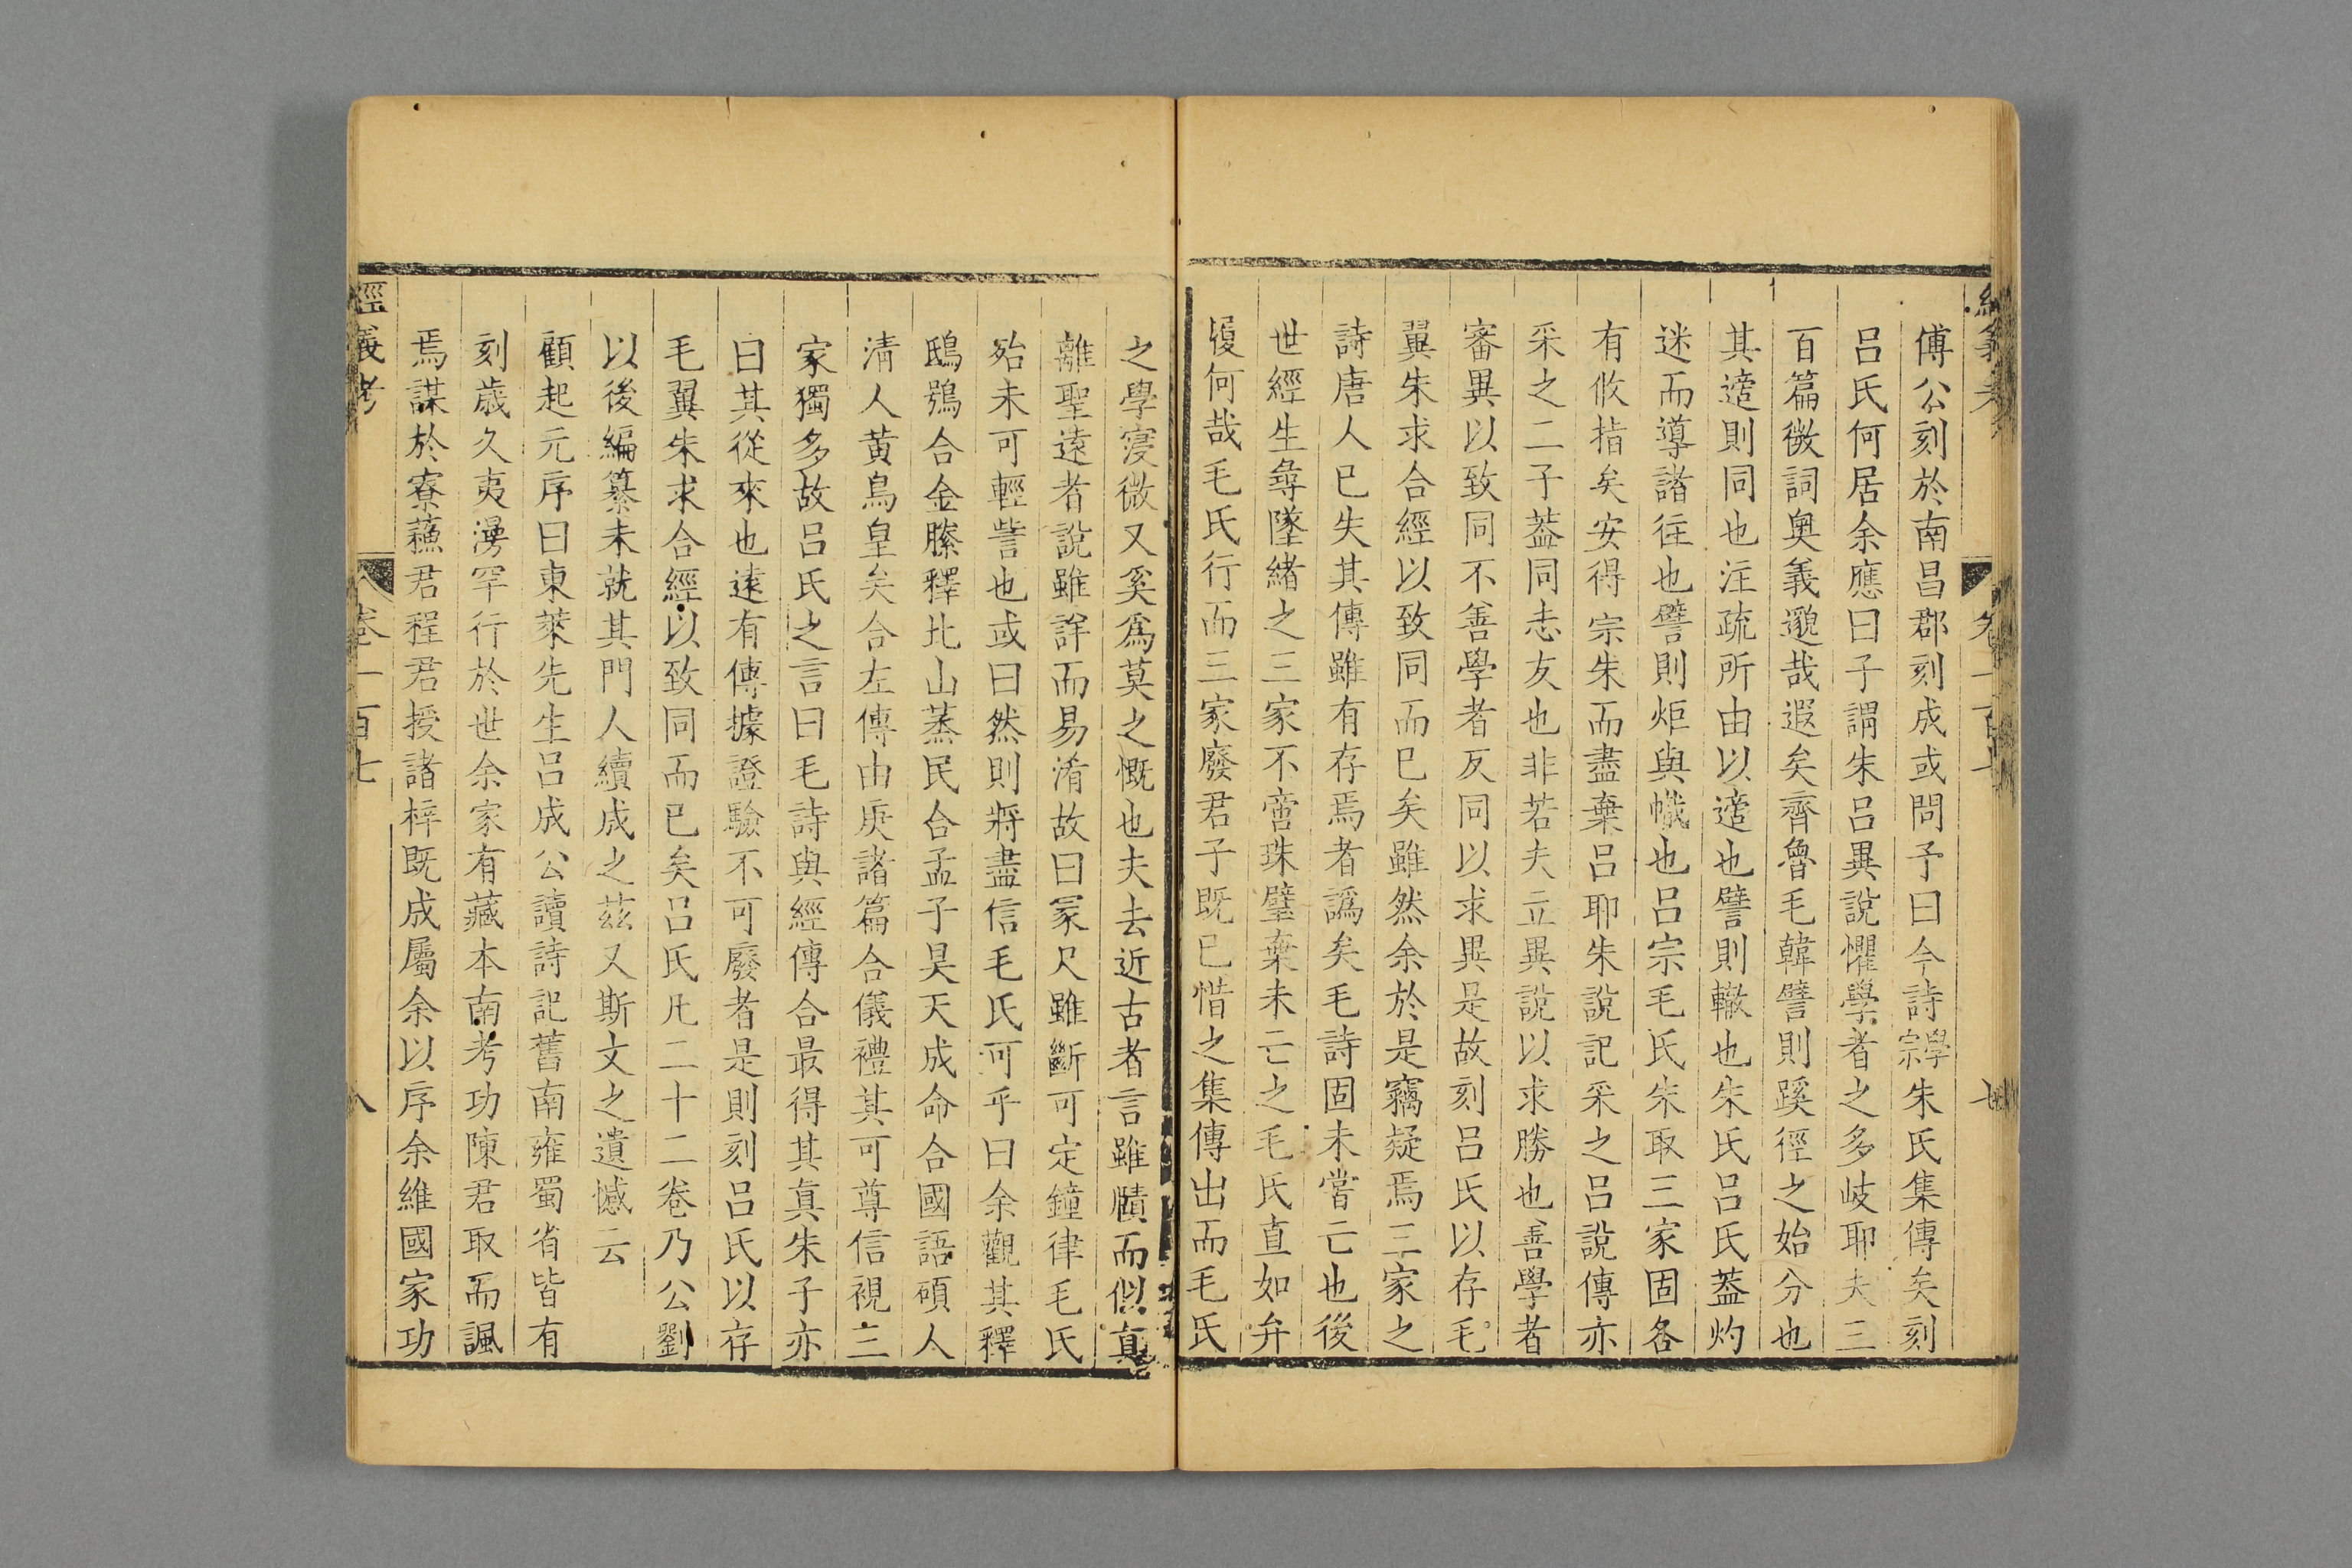 傅公刻於南昌郡刻成或問予曰今詩學宗朱氏集傳矣刻
呂氏何居余應曰子謂朱呂異說懼學者之多岐耶夫三
百篇微詞奧義邈哉遐矣齊魯毛韓譬則蹊徑之始分也
其適則同也注疏所由以適也譬則轍也朱氏呂氏葢灼
迷而導諸往也譬則炬與幟也呂宗毛氏朱取三家固各
有攸指矣安得宗朱而盡棄呂耶朱說記采之呂說傳亦
采之二子葢同志友也非若夫立異說以求勝也善學者
審異以致同不善學者反同以求異是故刻呂氏以存毛
翼朱求合經以致同而已矣雖然余於是竊疑焉三家之
詩唐人已失其傳雖有存焉者譌矣毛詩固未嘗亡也後
世經生尋墜緒之三家不啻珠璧棄未亡之毛氏直如弁
履何哉毛氏行而三家廢君子既已惜之集傳出而毛氏
之學寖微又奚爲莫之慨也夫去近古者言雖賾而似眞
離聖遠者說雖詳而易淆故曰冢尺雖斷可定鐘律毛氏
殆未可輕訾也或曰然則將盡信毛氏可乎曰余觀其釋
鴟鴞合金縢釋北山蒸民合孟子昊天成命合國語碩人
淸人黃鳥皇矣合左傳由庚諸篇合儀禮其可尊信視三
家獨多故呂氏之言曰毛詩與經傳合最得其眞朱子亦
曰其從來也遠有傳據證驗不可廢者是則刻呂氏以存
毛翼朱求合經以致同而已矣呂氏凡二十二卷乃公劉
以後編纂未就其門人續成之茲又斯文之遺憾云
顧起元序曰東萊先生呂成公讀詩記舊南雍蜀省皆有
刻歲久夷漫罕行於世余家有藏本南考功陳君取而諷
焉謀於寮蘓君程君授諸梓既成屬余以序余維國家功
經義考
卷一百七
八